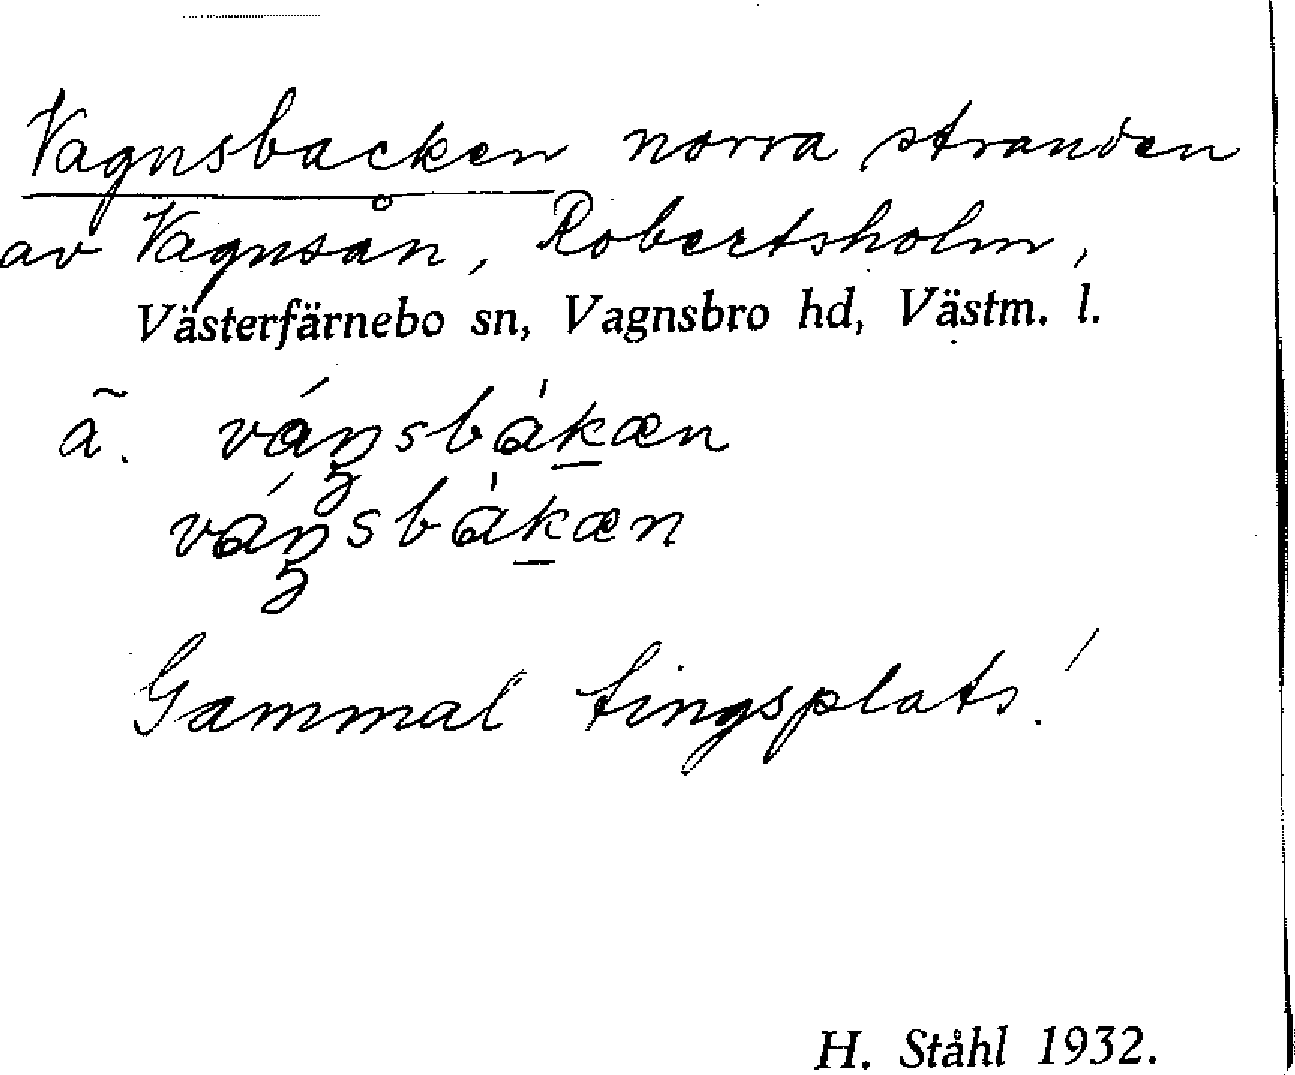 Vagnsbacken norra stranden
av Vagnsån, Robertsholm,
Västerfärnebo sn, Vagnsbro hd, Västm. l.
ã. váŋsbàkæn
váŋsbàkæn
Gammal tingsplats!
H. Ståhl 1932.